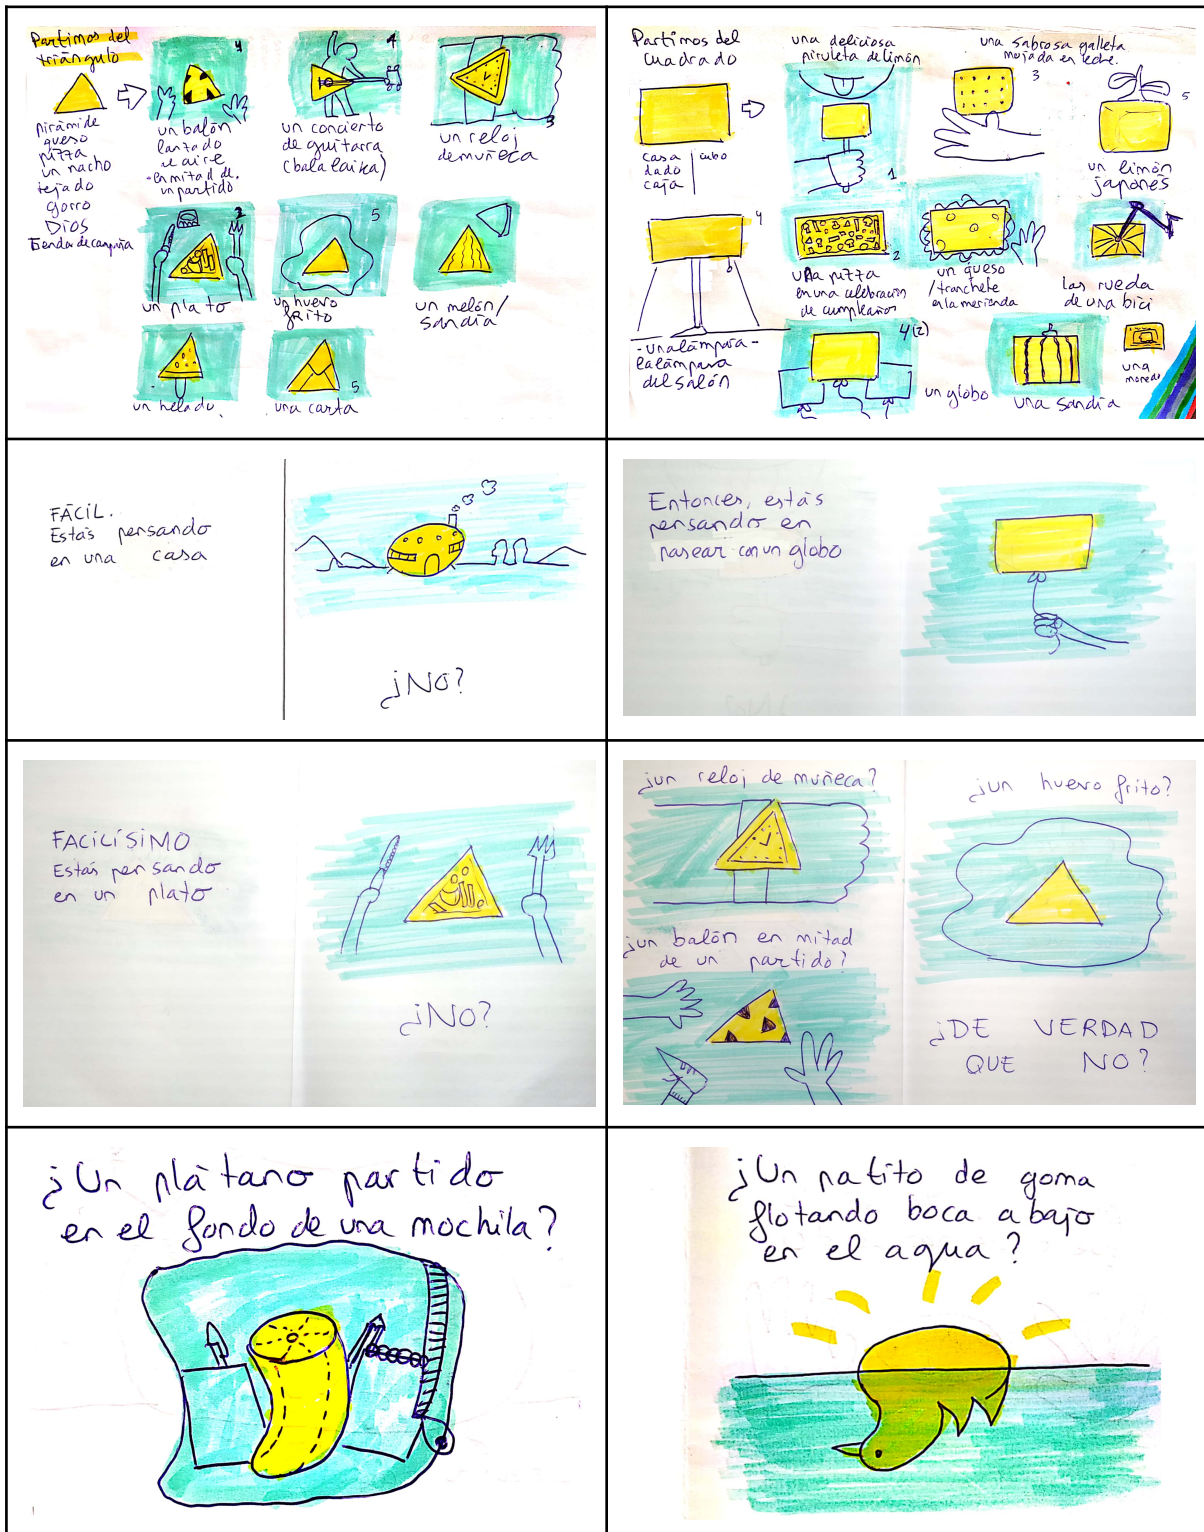 Partimos del
triángulo
pirámide
queso
pizza
un nacho
tejado
gorro
Dios
tienda de campaña
4
un balón
lanzado
al aire
en mitad de
un partido
4
un concierto
de guitarra
(balalaika)
3
un reloj
de muñeca
2
un plato
5
un huevo
frito
un melón/
sandía
un helado.
5
una carta
Partimos del
cuadrado
casa
dado
caja
cubo
una deliciosa
piruleta de limón
1
una sabrosa galleta
mojada en leche.
3
5
un limón
japonés
4
- una lámpara -
la lámpara
del salón
2
una pizza
en una celebración
de cumpleaños
un queso
/tranchete
en la merienda
las rueda
de una bici
4(2)
un globo
una sandía
una
moneda
FÁCIL.
Estás pensando
en una casa
¿NO?
Entonces, estás
pensando en
pasear con un globo
FACILÍSIMO
Estás pensando
en un plato
¿NO?
¿un reloj de muñeca?
¿un huevo frito?
¿un balón en mitad
de un partido?
¿DE VERDAD
QUE NO?
¿Un plátano partido
en el fondo de una mochila?
¿Un patito de goma
flotando boca abajo
en el agua?